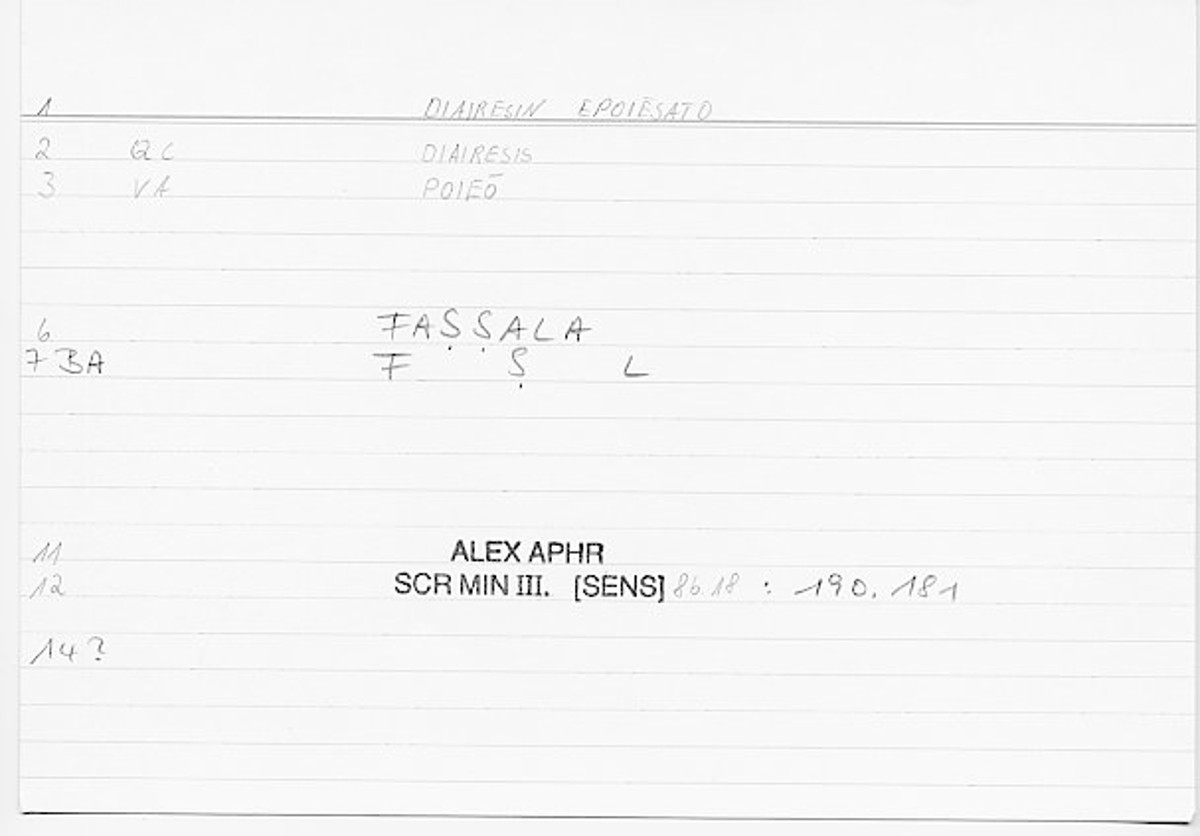 1 DIAIRESIN EPOIĒSATO
2 QC DIAIRESIS
3 VA POIEŌ
6 FAṢṢALA
7 BA F Ṣ L
11 ALEX APHR
12 SCR MIN III. [SENS] 86.18 : 190.181
14?